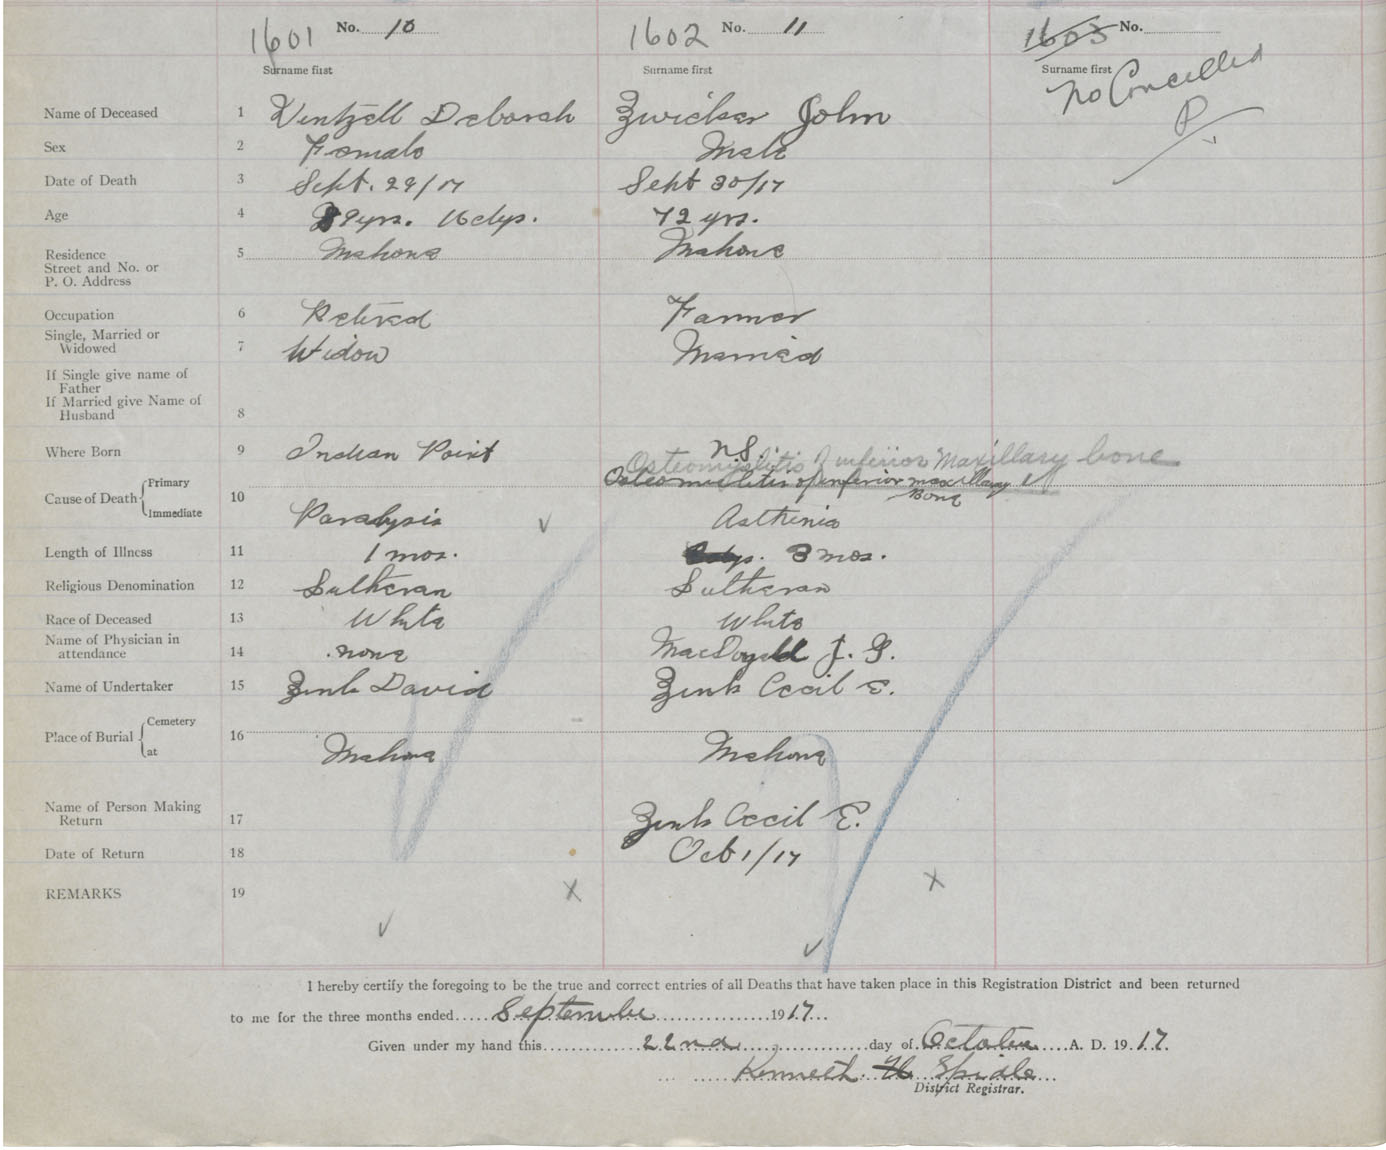 1601 No. 10 1602 No. 11 1603 No.
Surname first Surname first Surname first
No Concelled
P
Name of Deceased 1 Wentzell Deborah Zwicker John
Sex 2 Female Male
Date of Death 3 Sept. 29/17 Sept 30/17
Age 4 89yrs. 16dys. 72 yrs.
Residence 5 Mahone Mahone
Street and No. or
P. O. Address
Occupation 6 Retired Farmer
Single, Married or
Widowed 7 Widow Married
If Single give name of
Father
If Married give Name of
Husband 8
Where Born 9 Indian Point NS
Osteomyelitis of inferior Maxillary bone
Cause of Death Primary Osteomielitis of inferior maxillary
Bone
10
Immediate Paralysis Asthenia
Length of Illness 11 1 mos. 3 mos.
Religious Denomination 12 Lutheran Lutheran
Race of Deceased 13 White White
Name of Physician in
attendance 14 none MacDonald J. G.
Name of Undertaker 15 Zink David Zink Cecil E.
Place of Burial Cemetery 16
at Mahone Mahone
Name of Person Making
Return 17 Zink Cecil E.
Date of Return 18 Oct 1/17
REMARKS 19
I hereby certify the foregoing to be the true and correct entries of all Deaths that have taken place in this Registration District and been returned
to me for the three months ended September 1917
Given under my hand this 22nd day of October A. D. 1917.
Kenneth Spidle
District Registrar.